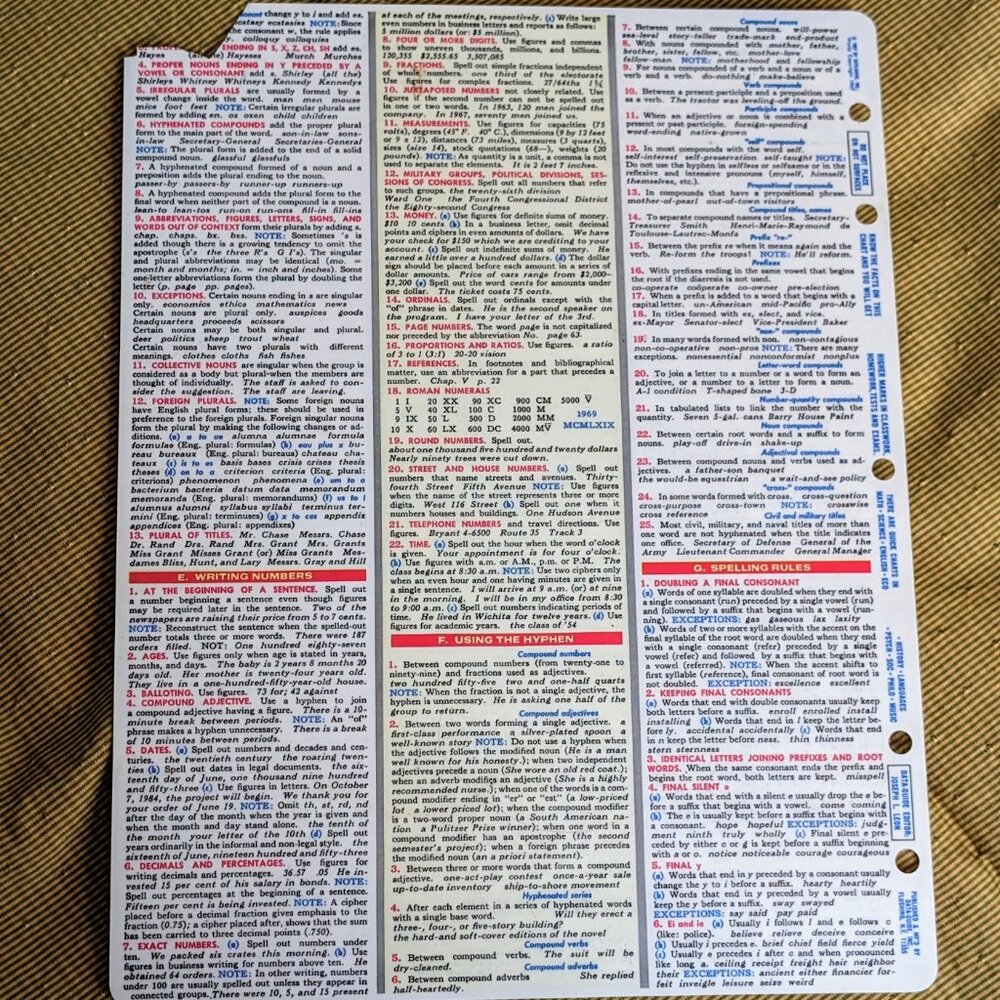 change y to i and add es.
ecstasy ecstasies NOTE: Since
the consonant w, the rule applies
colloquy colloquies
ENDING IN S, X, Z, CH, SH add es.
Hayes (all the) Hayeses Murch Murches
4. PROPER NOUNS ENDING IN Y PRECEDED BY A
VOWEL OR CONSONANT add s. Shirley (all the)
Shirleys Whitney Whitneys Kennedy Kennedys
5. IRREGULAR PLURALS are usually formed by a
vowel change inside the word. man men mouse
mice foot feet NOTE: Certain irregular plurals are
formed by adding en. ox oxen child children
6. HYPHENATED COMPOUNDS add the proper plural
form to the main part of the word. son-in-law sons-
in-law Secretary-General Secretaries-General
NOTE: The plural form is added to the end of a solid
compound noun. glassful glassfuls
7. A hyphenated compound formed of a noun and
a preposition adds the plural ending to the noun.
passer-by passers-by runner-up runners-up
8. A hyphenated compound adds the plural form to the
final word when neither part of the compound is a noun.
lean-to lean-tos run-on run-ons fill-in fill-ins
9. ABBREVIATIONS, FIGURES, LETTERS, SIGNS, AND
WORDS OUT OF CONTEXT form their plurals by adding s.
chap. chaps. bx. bxs. NOTE: Sometimes 's is
added though there is a growing tendency to omit the
apostrophe (s's the three R's G I's). The singular
and plural abbreviations may be identical (mo. =
month and months; in. = inch and inches). Some
one-letter abbreviations form the plural by doubling the
letter (p. page pp. pages).
10. EXCEPTIONS. Certain nouns ending in s are singular
only. economics ethics mathematics news
Certain nouns are plural only. auspices goods
headquarters proceeds scissors
Certain nouns may be both singular and plural.
deer politics sheep trout wheat
Certain nouns have two plurals with different
meanings. clothes cloths fish fishes
11. COLLECTIVE NOUNS are singular when the group is
considered as a body but plural when the members are
thought of individually. The staff is asked to con-
sider the suggestion. The staff are leaving.
12. FOREIGN PLURALS. NOTE: Some foreign nouns
have English plural forms; these should be used in
preference to the foreign plurals. Foreign singular nouns
form the plural by making the following changes or ad-
ditions. (a) a to ae alumna alumnae formula
formulae (Eng. plural: formulas) (b) eau plus x bu-
reau bureaux (Eng. plural: bureaus) chateau cha-
teaux (c) is to es basis bases crisis crises thesis
theses (d) on to a criterion criteria (Eng. plural:
criterions) phenomenon phenomena (e) um to a
bacterium bacteria datum data memorandum
memoranda (Eng. plural: memorandums) (f) us to i
alumnus alumni syllabus syllabi terminus ter-
mini (Eng. plural: terminuses) (g) x to ces appendix
appendices (Eng. plural: appendixes)
13. PLURAL OF TITLES. Mr. Chase Messrs. Chase
Dr. Rand Drs. Rand Mrs. Grant Mrs. Grants
Miss Grant Misses Grant (or) Miss Grants Mes-
dames Bliss, Hunt, and Lary Messrs. Gray and Hill
E. WRITING NUMBERS
1. AT THE BEGINNING OF A SENTENCE. Spell out
a number beginning a sentence even though figures
may be required later in the sentence. Two of the
newspapers are raising their price from 5 to 7 cents.
NOTE: Reconstruct the sentence when the spelled-out
number totals three or more words. There were 187
orders filled. NOT: One hundred eighty-seven
2. AGES. Use figures only when age is stated in years,
months, and days. The baby is 2 years 8 months 20
days old. Her mother is twenty-four years old.
They live in a one-hundred-fifty-year-old house.
3. BALLOTING. Use figures. 73 for; 42 against
4. COMPOUND ADJECTIVE. Use a hyphen to join
a compound adjective having a figure. There is a 10-
minute break between periods. NOTE: An "of"
phrase makes a hyphen unnecessary. There is a break
of 10 minutes between periods.
5. DATES. (a) Spell out numbers and decades and cen-
turies. the twentieth century the roaring twen-
ties (b) Spell out dates in legal documents. the six-
teenth day of June, one thousand nine hundred
and fifty-three (c) Use figures in letters. On October
7, 1984, the project will begin. We thank you for
your order of June 19. NOTE: Omit th, st, rd, nd
after the day of the month when the year is given and
when the month and day stand alone. the tenth of
the month your letter of the 10th (d) Spell out
years ordinarily in the informal and non-legal style. the
sixteenth of June, nineteen hundred and fifty-three
6. DECIMALS AND PERCENTAGES. Use figures for
writing decimals and percentages. 36.57 .05 He in-
vested 15 per cent of his salary in bonds. NOTE:
Spell out percentages at the beginning of a sentence.
Fifteen per cent is being invested. NOTE: A cipher
placed before a decimal gives emphasis to the
fraction (0.75); a cipher placed after, shows that the sum
has been carried to three decimal points (.750).
7. EXACT NUMBERS. (a) Spell out numbers under
ten. We packed six crates this morning. (b) Use
figures in business writing for numbers above ten. He
obtained 64 orders. NOTE: In other writing, numbers
under 100 are usually spelled out unless they appear in
connected groups. There were 10, 5, and 15 present
at each of the meetings, respectively. (c) Write large
even numbers in business letters and reports as follows:
5 million dollars (or: $5 million).
8. FOUR OR MORE DIGITS. Use figures and commas
to show uneven thousands, millions, and billions.
120,355 $2,555.65 3,507,085
9. FRACTIONS. Spell out simple fractions independent
of whole numbers. one third of the electorate
Use figures for complex fractions. 27/64ths 1¾
10. JUXTAPOSED NUMBERS not closely related. Use
figures if the second number can not be spelled out
in one or two words. In 1963, 120 men joined the
company. In 1967, seventy men joined us.
11. MEASUREMENTS. Use figures for capacities (75
volts), degrees (45° F. 40° C.), dimensions (9 by 12 feet
or 9 x 12), distances (73 miles), measures (3 quarts),
sizes (size 14), stock quotations (68—), weights (20
pounds). NOTE: As quantity is a unit, a comma is not
used to separate the elements. It is 2 feet 7 inches.
12. MILITARY GROUPS, POLITICAL DIVISIONS, SES-
SIONS OF CONGRESS. Spell out all numbers that refer
to such groups. the twenty-sixth division
Ward One the Fourth Congressional District
the Eighty-second Congress
13. MONEY. (a) Use figures for definite sums of money.
$10 10 cents (b) In a business letter, omit decimal
points and ciphers in even amounts of dollars. We have
your check for $150 which we are crediting to your
account. (c) Spell out indefinite sums of money. He
earned a little over a hundred dollars. (d) The dollar
sign should be placed before each amount in a series of
dollar amounts. Price of cars range from $2,000—
$3,200 (e) Spell out the word cents for amounts under
one dollar. The ticket costs 75 cents.
14. ORDINALS. Spell out ordinals except with the
"of" phrase in dates. He is the second speaker on
the program. I have your letter of the 3rd.
15. PAGE NUMBERS. The word page is not capitalized
nor preceded by the abbreviation No. page 63.
16. PROPORTIONS AND RATIOS. Use figures. a ratio
of 3 to 1 (3:1) 20-20 vision
17. REFERENCES. In footnotes and bibliographical
matter, use an abbreviation for a part that precedes a
number. Chap. V p. 22
18. ROMAN NUMERALS
1 I 20 XX 90 XC 900 CM 5000 V̅
5 V 40 XL 100 C 1000 M
9 IX 50 L 500 D 2000 MM 1969
10 X 60 LX 600 DC 4000 MV̅ MCMLXIX
19. ROUND NUMBERS. Spell out.
about one thousand five hundred and twenty dollars
Nearly ninety trees were cut down.
20. STREET AND HOUSE NUMBERS. (a) Spell out
numbers that name streets and avenues. Thirty-
fourth Street Fifth Avenue NOTE: Use figures
when the name of the street represents three or more
digits. West 116 Street (b) Spell out one when it
numbers houses and buildings. One Hudson Avenue
21. TELEPHONE NUMBERS and travel directions. Use
figures. Bryant 4-6500 Route 35 Track 3
22. TIME. (a) Spell out the hour when the word o'clock
is given. Your appointment is for four o'clock.
(b) Use figures with a.m. or A.M., p.m. or P.M. The
class begins at 8:30 a.m. NOTE: Use two ciphers only
when an even hour and one having minutes are given in
a single sentence. I will arrive at 9 a.m. (or) at nine
in the morning. I will be in my office from 8:30
to 9:00 a.m. (c) Spell out numbers indicating periods of
time. He lived in Wichita for twelve years. (d) Use
figures for academic years. the class of '54
F. USING THE HYPHEN
Compound numbers
1. Between compound numbers (from twenty-one to
ninety-nine) and fractions used as adjectives.
two hundred fifty-five two and one-half quarts
NOTE: When the fraction is not a single adjective, the
hyphen is unnecessary. He is asking one half of the
group to return.
Compound adjectives
2. Between two words forming a single adjective. a
first-class performance a silver-plated spoon a
well-known story NOTE: Do not use a hyphen when
the adjective follows the modified noun (He is a man
well known for his honesty.); when two independent
adjectives precede a noun (She wore an old red coat.);
when an adverb modifies an adjective (She is a highly
recommended nurse.); when one of the words is a com-
pound modifier ending in "er" or "est" (a low-priced
lot a lower priced lot); when the compound modifier
is a two-word proper noun (a South American na-
tion a Pulitzer Prize winner); when one word in a
compound modifier has an apostrophe (the second
semester's project); when a foreign phrase precedes
the modified noun (an a priori statement).
3. Between three or more words that form a compound
adjective. one-act-play contest once-a-year sale
up-to-date inventory ship-to-shore movement
Hyphenated series
4. After each element in a series of hyphenated words
with a single base word. Will they erect a
three-, four-, or five-story building?
the hard-and soft-cover editions of the novel
Compound verbs
5. Between compound verbs. The suit will be
dry-cleaned.
Compound adverbs
6. Between compound adverbs She replied
half-heartedly.
Compound nouns
7. Between certain compound nouns. will-power
sea-level story-teller trade-mark end-product
8. With nouns compounded with mother, father,
brother, sister, fellow, etc. mother-love
fellow-man NOTE: motherhood and fellowship
9. For nouns compounded of a verb and a noun or of a
verb and a verb. do-nothing make-believe
Verb compounds
10. Between a present-participle and a preposition used
as a verb. The tractor was leveling-off the ground.
Participle compounds
11. When an adjective or noun is compounded with a
present or past participle. foreign-spending
word-ending native-grown
"self" compounds
12. In most compounds with the word self.
self-interest self-preservation self-taught NOTE:
Do not use the hyphen in selfless or selfsame or in the
reflexive and intensive pronouns (myself, himself,
themselves, etc.).
Prepositional compounds
13. In compounds that have a prepositional phrase.
mother-of-pearl out-of-town visitors
Compound titles, names
14. To separate compound names or titles. Secretary-
Treasurer Smith Henri-Marie-Raymond de
Toulouse-Lautrec-Monfa
Prefix "re-"
15. Between the prefix re when it means again and the
verb. Re-form the troops! NOTE: He'll reform.
Prefixes
16. With prefixes ending in the same vowel that begins
the root if the diaresis is not used.
co-operate coöperate co-owner pre-election
17. When a prefix is added to a word that begins with a
capital letter. un-American mid-Pacific pro-Ally
18. In titles formed with ex, elect, and vice.
ex-Mayor Senator-elect Vice-President Baker
"non-" compounts
19. In many words formed with non. non-contagious
non-co-operative non-pros NOTE: There are many
exceptions. nonessential nonconformist nonplus
Letter-word compounds
20. To join a letter or a number to a word to form an
adjective, or a number to a letter to form a noun.
A-1 condition T-shaped bone 3-D
Number-quantity compounds
21. In tabulated lists to link the number with the
quantity. Seven 5-gal. cans Barry House Paint
Noun compounds
22. Between certain root words and a suffix to form
nouns. play-off drive-in shake-up
Adjectival compounds
23. Between compound nouns and verbs used as ad-
jectives. a father-son banquet
the would-be equestrian a wait-and-see policy
"cross-" compounds
24. In some words formed with cross. cross-question
cross-purpose cross-town NOTE: crosswise
cross reference
Civil and military titles
25. Most civil, military, and naval titles of more than
one word are not hyphenated when the title indicates
one office. Secretary of Defense General of the
Army Lieutenant Commander General Manager
G. SPELLING RULES
1. DOUBLING A FINAL CONSONANT
(a) Words of one syllable are doubled when they end with
a single consonant (run) preceded by a single vowel (run)
and followed by a suffix that begins with a vowel (run-
ning). EXCEPTIONS: gas gaseous lax laxity
(b) Words of two or more syllables with the accent on the
final syllable of the root word are doubled when they end
with a single consonant (refer) preceded by a single
vowel (refer) and followed by a suffix that begins with
a vowel (referred). NOTE: When the accent shifts to
first syllable (reference), final consonant of root word is
not doubled. EXCEPTION: excellence excellent
2. KEEPING FINAL CONSONANTS
(a) Words that end with double consonants usually keep
both letters before a suffix. enroll enrolled install
installing (b) Words that end in l keep the letter be-
fore ly. accidental accidentally (c) Words that end
in n keep the letter before ness. thin thinness
stern sternness
3. IDENTICAL LETTERS JOINING PREFIXES AND ROOT
WORDS. When the same consonant ends the prefix and
begins the root word, both letters are kept. misspell
4. FINAL SILENT e
(a) Words that end with a silent e usually drop the e be-
fore a suffix that begins with a vowel. come coming
(b) The e is usually kept before a suffix that begins with
a consonant. hope hopeful EXCEPTIONS: judg-
ment ninth truly wholly (c) Final silent e pre-
ceded by either c or g is kept before a suffix beginning
with a or o. notice noticeable courage courageous
5. FINAL y
(a) Words that end in y preceded by a consonant usually
change the y to i before a suffix. hearty heartily
(b) Words that end in y preceded by a vowel usually
keep the y before a suffix. sway swayed
EXCEPTIONS: say said pay paid
6. Ei and ie (a) Usually i follows l and e follows c
(like: police). believe relieve deceive conceive
(b) Usually i precedes e. brief chief field fierce yield
(c) Usually e precedes i after c and when pronounced
like long a. ceiling receipt freight heir neighbor
their EXCEPTIONS: ancient either financier for-
feit inveigle leisure seize weird
DO NOT PLACE
ON HOT SURFACES
KNOW THE FACTS ON THIS
CHART AND YOU WILL GET
HIGHER MARKS IN CLASSWORK,
HOMEWORK, TESTS AND EXAMS.
THERE ARE QUICK CHARTS IN
MATH • SCIENCE • ENGLISH • ECO
• HISTORY • LANGUAGES
• PSYCH • SOC • PHILO • MUSIC
DATA-GUIDE EDITOR:
JOSEPH L. LEON